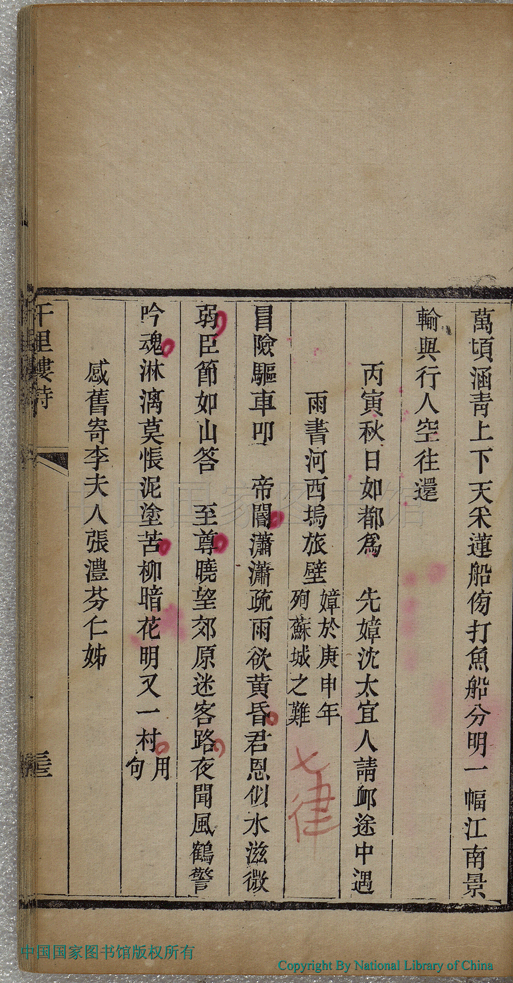 萬頃涵青上下天采蓮船傍打魚船分明一幅江南景
輸與行人空往還
丙寅秋日如都爲　先嫜沈太宜人請卹途中遇
雨書河西塢旅壁
嫜於庚申年
殉蘇城之難
七律
冒險驅車叩　帝閽瀟瀟疏雨欲黃昏君恩似水滋微
弱臣節如山答　至尊曉望郊原迷客路夜聞風鶴警
吟魂淋漓莫悵泥塗苦柳暗花明又一村
用
句
感舊寄李夫人張澧芬仁姊
千里樓詩
中国国家图书馆版权所有
Copyright By National Library of China